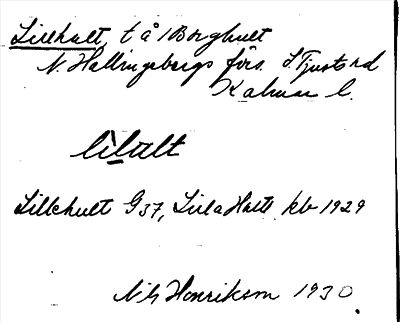 Lillhult, t å 1 Borghult
N. Hallingebergs förs. S Tjusts hd
Kalmar l.
lilalt
Lillehult G37, Lilla Hult kb 1929
Nils Henrikson 1930